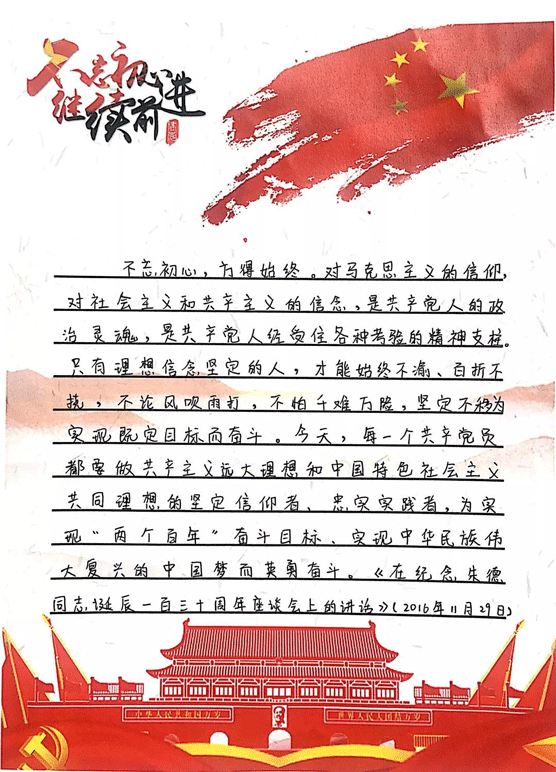 不忘初心
继续前进
不忘初心，方得始终。对马克思主义的信仰，
对社会主义和共产主义的信念，是共产党人的政
治灵魂，是共产党人经受住各种考验的精神支柱。
只有理想信念坚定的人，才能始终不渝、百折不
挠，不论风吹雨打，不怕千难万险，坚定不移为
实现既定目标而奋斗。今天，每一个共产党员
都要做共产主义远大理想和中国特色社会主义
共同理想的坚定信仰者、忠实实践者，为实
现“两个百年”奋斗目标、实现中华民族伟
大复兴的中国梦而英勇奋斗。《在纪念朱德
同志诞辰一百三十周年座谈会上的讲话》（2016年11月29日）
中华人民共和国万岁
世界人民大团结万岁